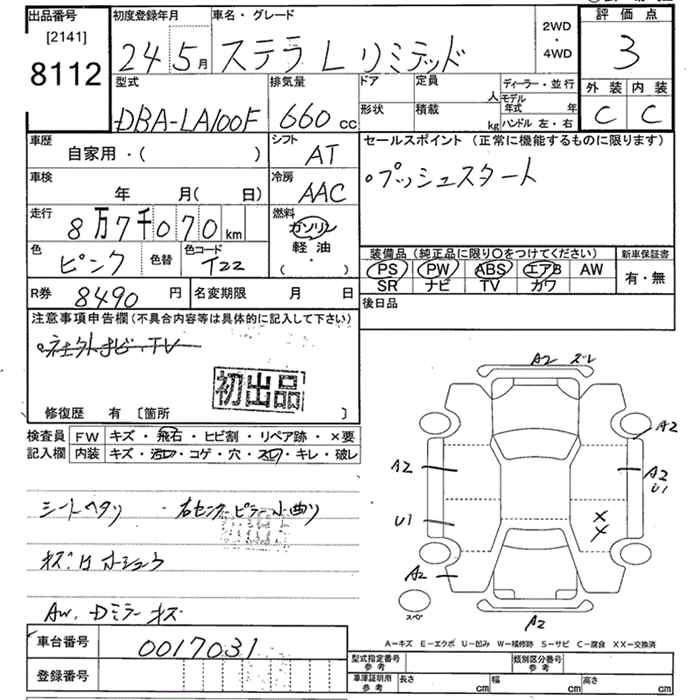 出品番号
[2141]
8112
初度登録年月
24 5月
車名・グレード
ステラ L リミテッド
2WD
・
4WD
評価点
3
外装 内装
C C
型式
DBA-LA100F
排気量
660 cc
ドア
定員
人
形状
積載
kg
ディーラー・並行
モデル年式 年
ハンドル 左・右
車歴
自家用・( )
シフト
AT
セールスポイント (正常に機能するものに限ります)
。プッシュスタート
車検
年 月( 日)
冷房
AAC
走行
8万7千070 km
燃料
ガソリン
軽油
( ・ )
色
ピンク
色替
色コード
T22
装備品 (純正品に限り〇をつけてください)
PS PW ABS エアB AW
SR ナビ TV カワ
新車保証書
有・無
R券
8490 円
名変期限 月 日
後日品
注意事項申告欄(不具合内容等は具体的に記入して下さい)
ナビ、TV
初出品
修復歴 有 〔箇所 〕
検査員
記入欄
FW キズ・飛石・ヒビ割・リペア跡・×要
内装 キズ・汚レ・コゲ・穴・スレ・キレ・破レ
シートヘタリ ・右センターピラー小曲り
AW、Dミラーキズ
A2 ズレ
A2
A2
A2
U1
U1
××
A2
スペ
A2
A-キズ E-エクボ U-凹み W-補修跡 S-サビ C-腐食 XX-交換済
車台番号
0017031
登録番号
型式指定番号
参考
類別区分番号
参考
車庫証明用
参考
長さ cm
幅 cm
高さ cm